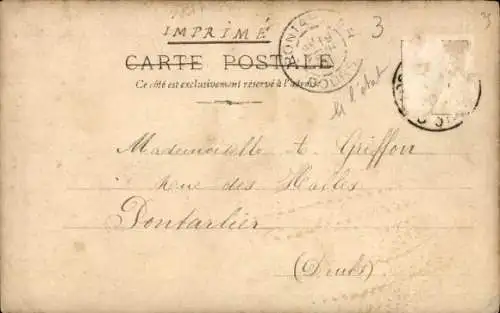 IMPRIMÉ
3
CARTE POSTALE
Ce côté est exclusivement réservé à l'adresse
Mademoiselle t. Griffon
Rue des Halles
Pontarlier
(Doubs)